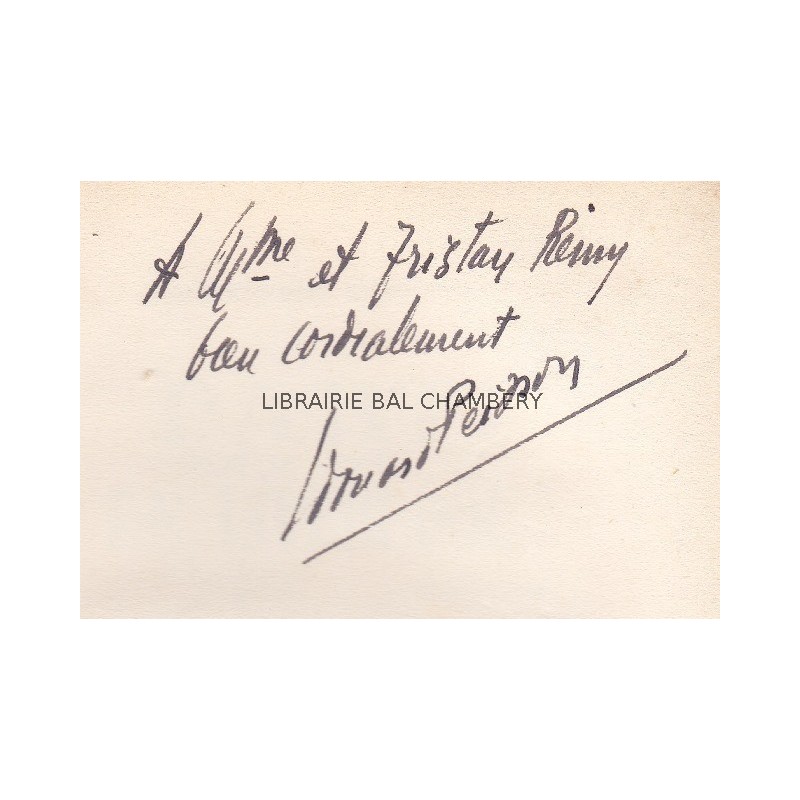 A Mme et Tristan Rémy
bien cordialement
LIBRAIRIE BAL CHAMBERY
Edouard Peisson